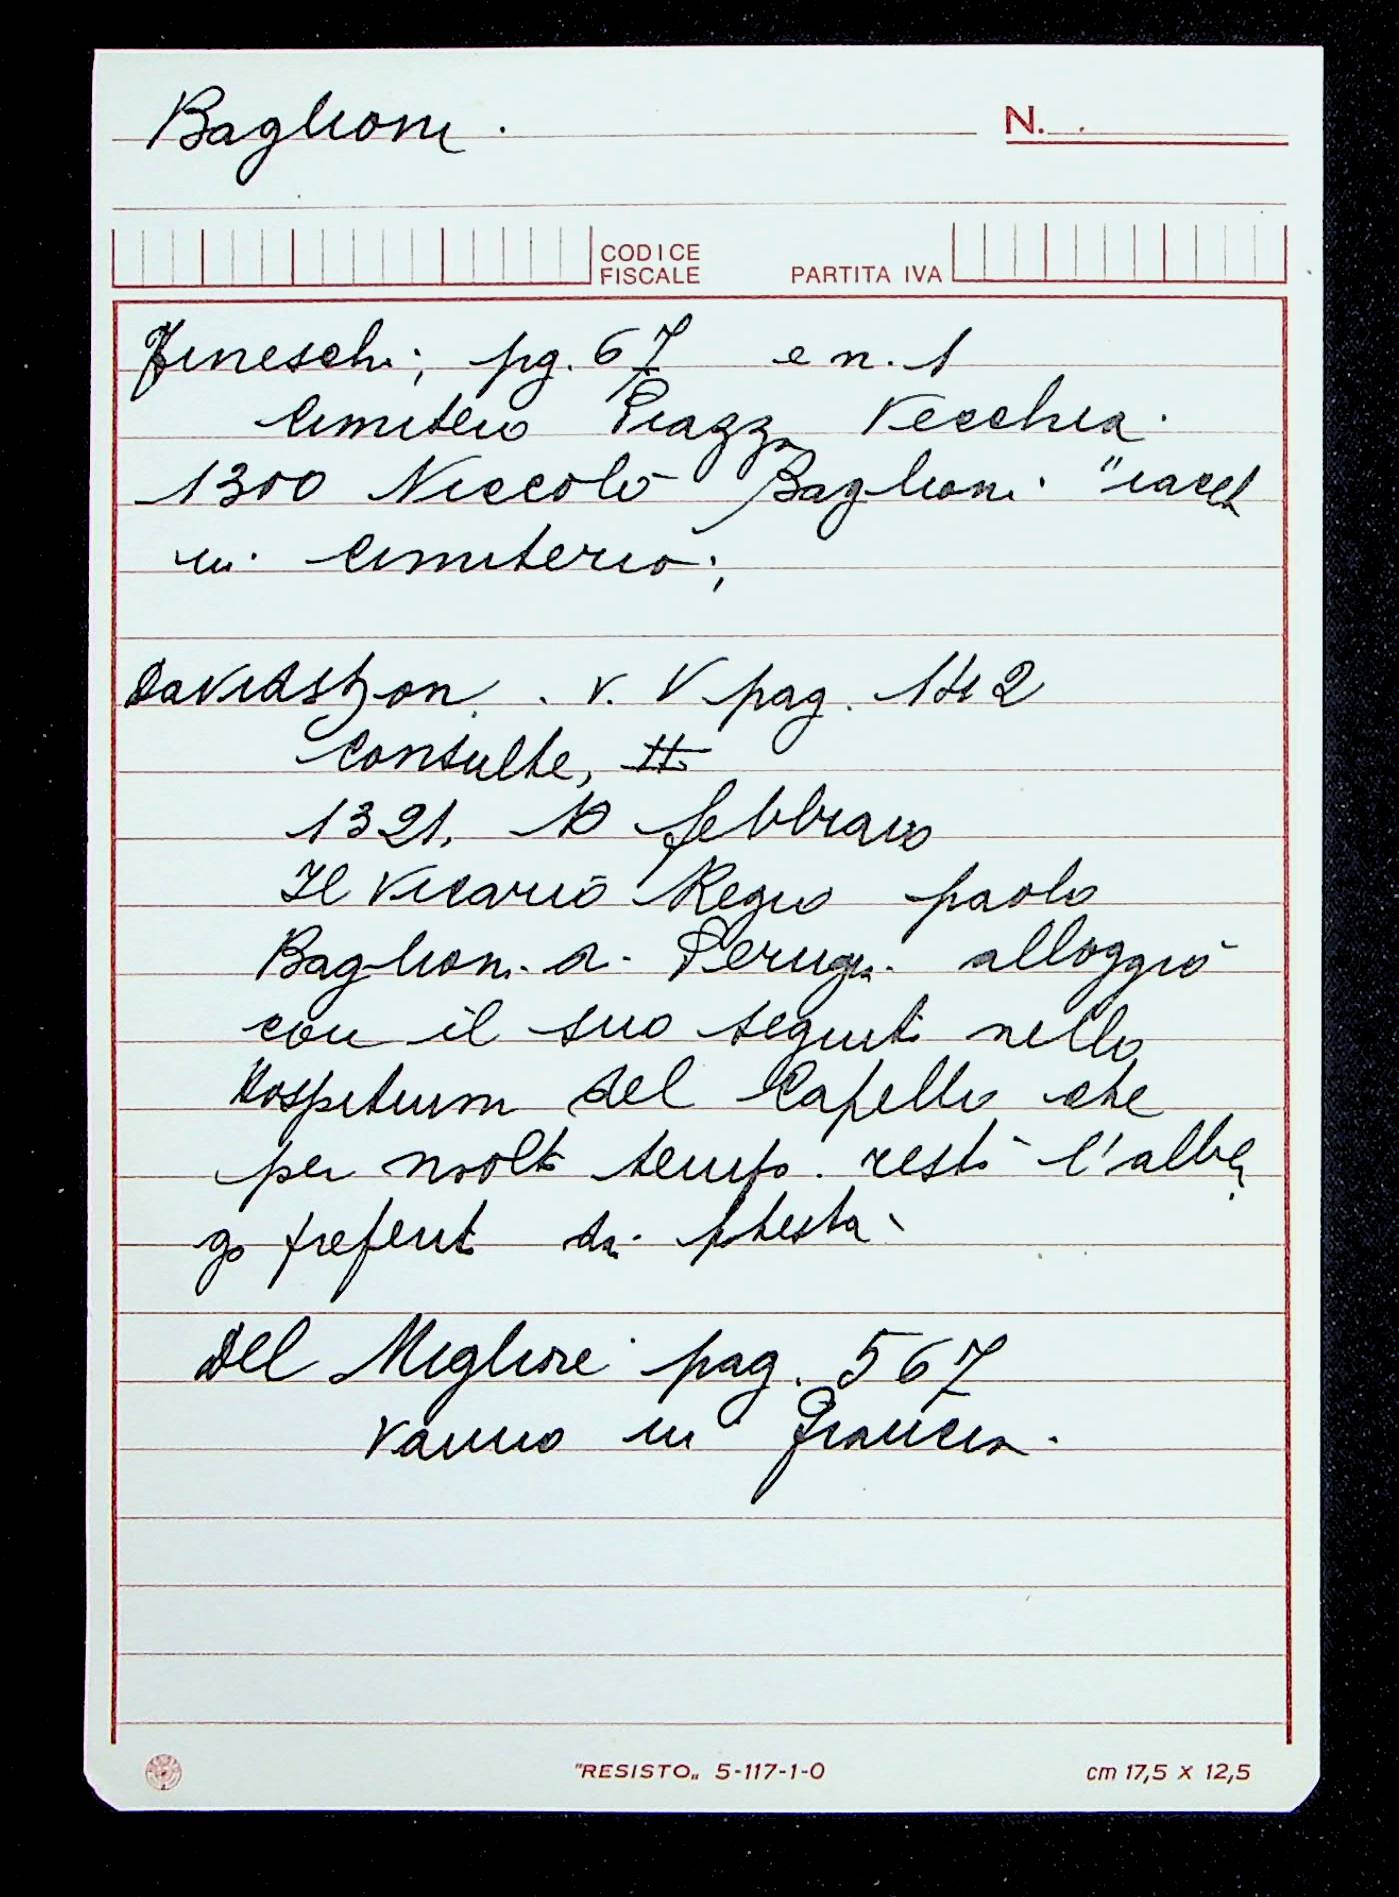 Baglioni.
N.
CODICE
FISCALE
PARTITA IVA
Fineschi; pg. 67 e n. 1
Cimitero Piazza Vecchia.
1300 Niccolò Baglioni "iacet
in Cimiterio;
Davidshon. v. V pag. 142
Consulte, II
1321, 10 febbraio
Il Vicario Regio paolo
Baglioni di Perugia alloggiò
con il suo seguito nello
Hospitium del Capello che
per molto tempo restò l'alber
go preferito dai potestà
Del Migliore pag. 567
Vanno in Francia.
"RESISTO„ 5-117-1-0
cm 17,5 x 12,5